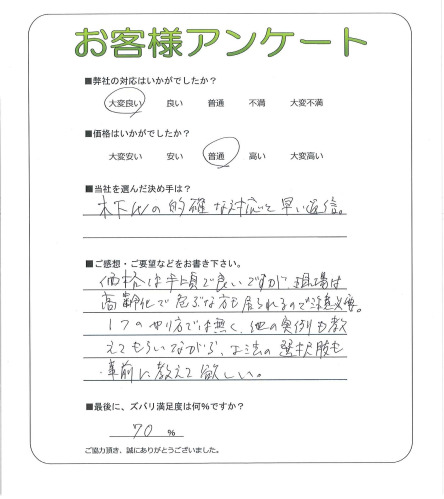 お客様アンケート
■弊社の対応はいかがでしたか?
大変良い 良い 普通 不満 大変不満
■価格はいかがでしたか?
大変安い 安い 普通 高い 大変高い
■当社を選んだ決め手は?
木下氏の的確な対応と早い返信。
■ご感想・ご要望などをお書き下さい。
価格は手頃で良いですが、現場は
高齢化で危ぶな方も居られるので注意必要。
1つのやり方では無く、他の実例も教
えてもらいながら、工法の選択肢も
事前に教えて欲しい。
■最後に、ズバリ満足度は何%ですか?
70 %
ご協力頂き、誠にありがとうございました。